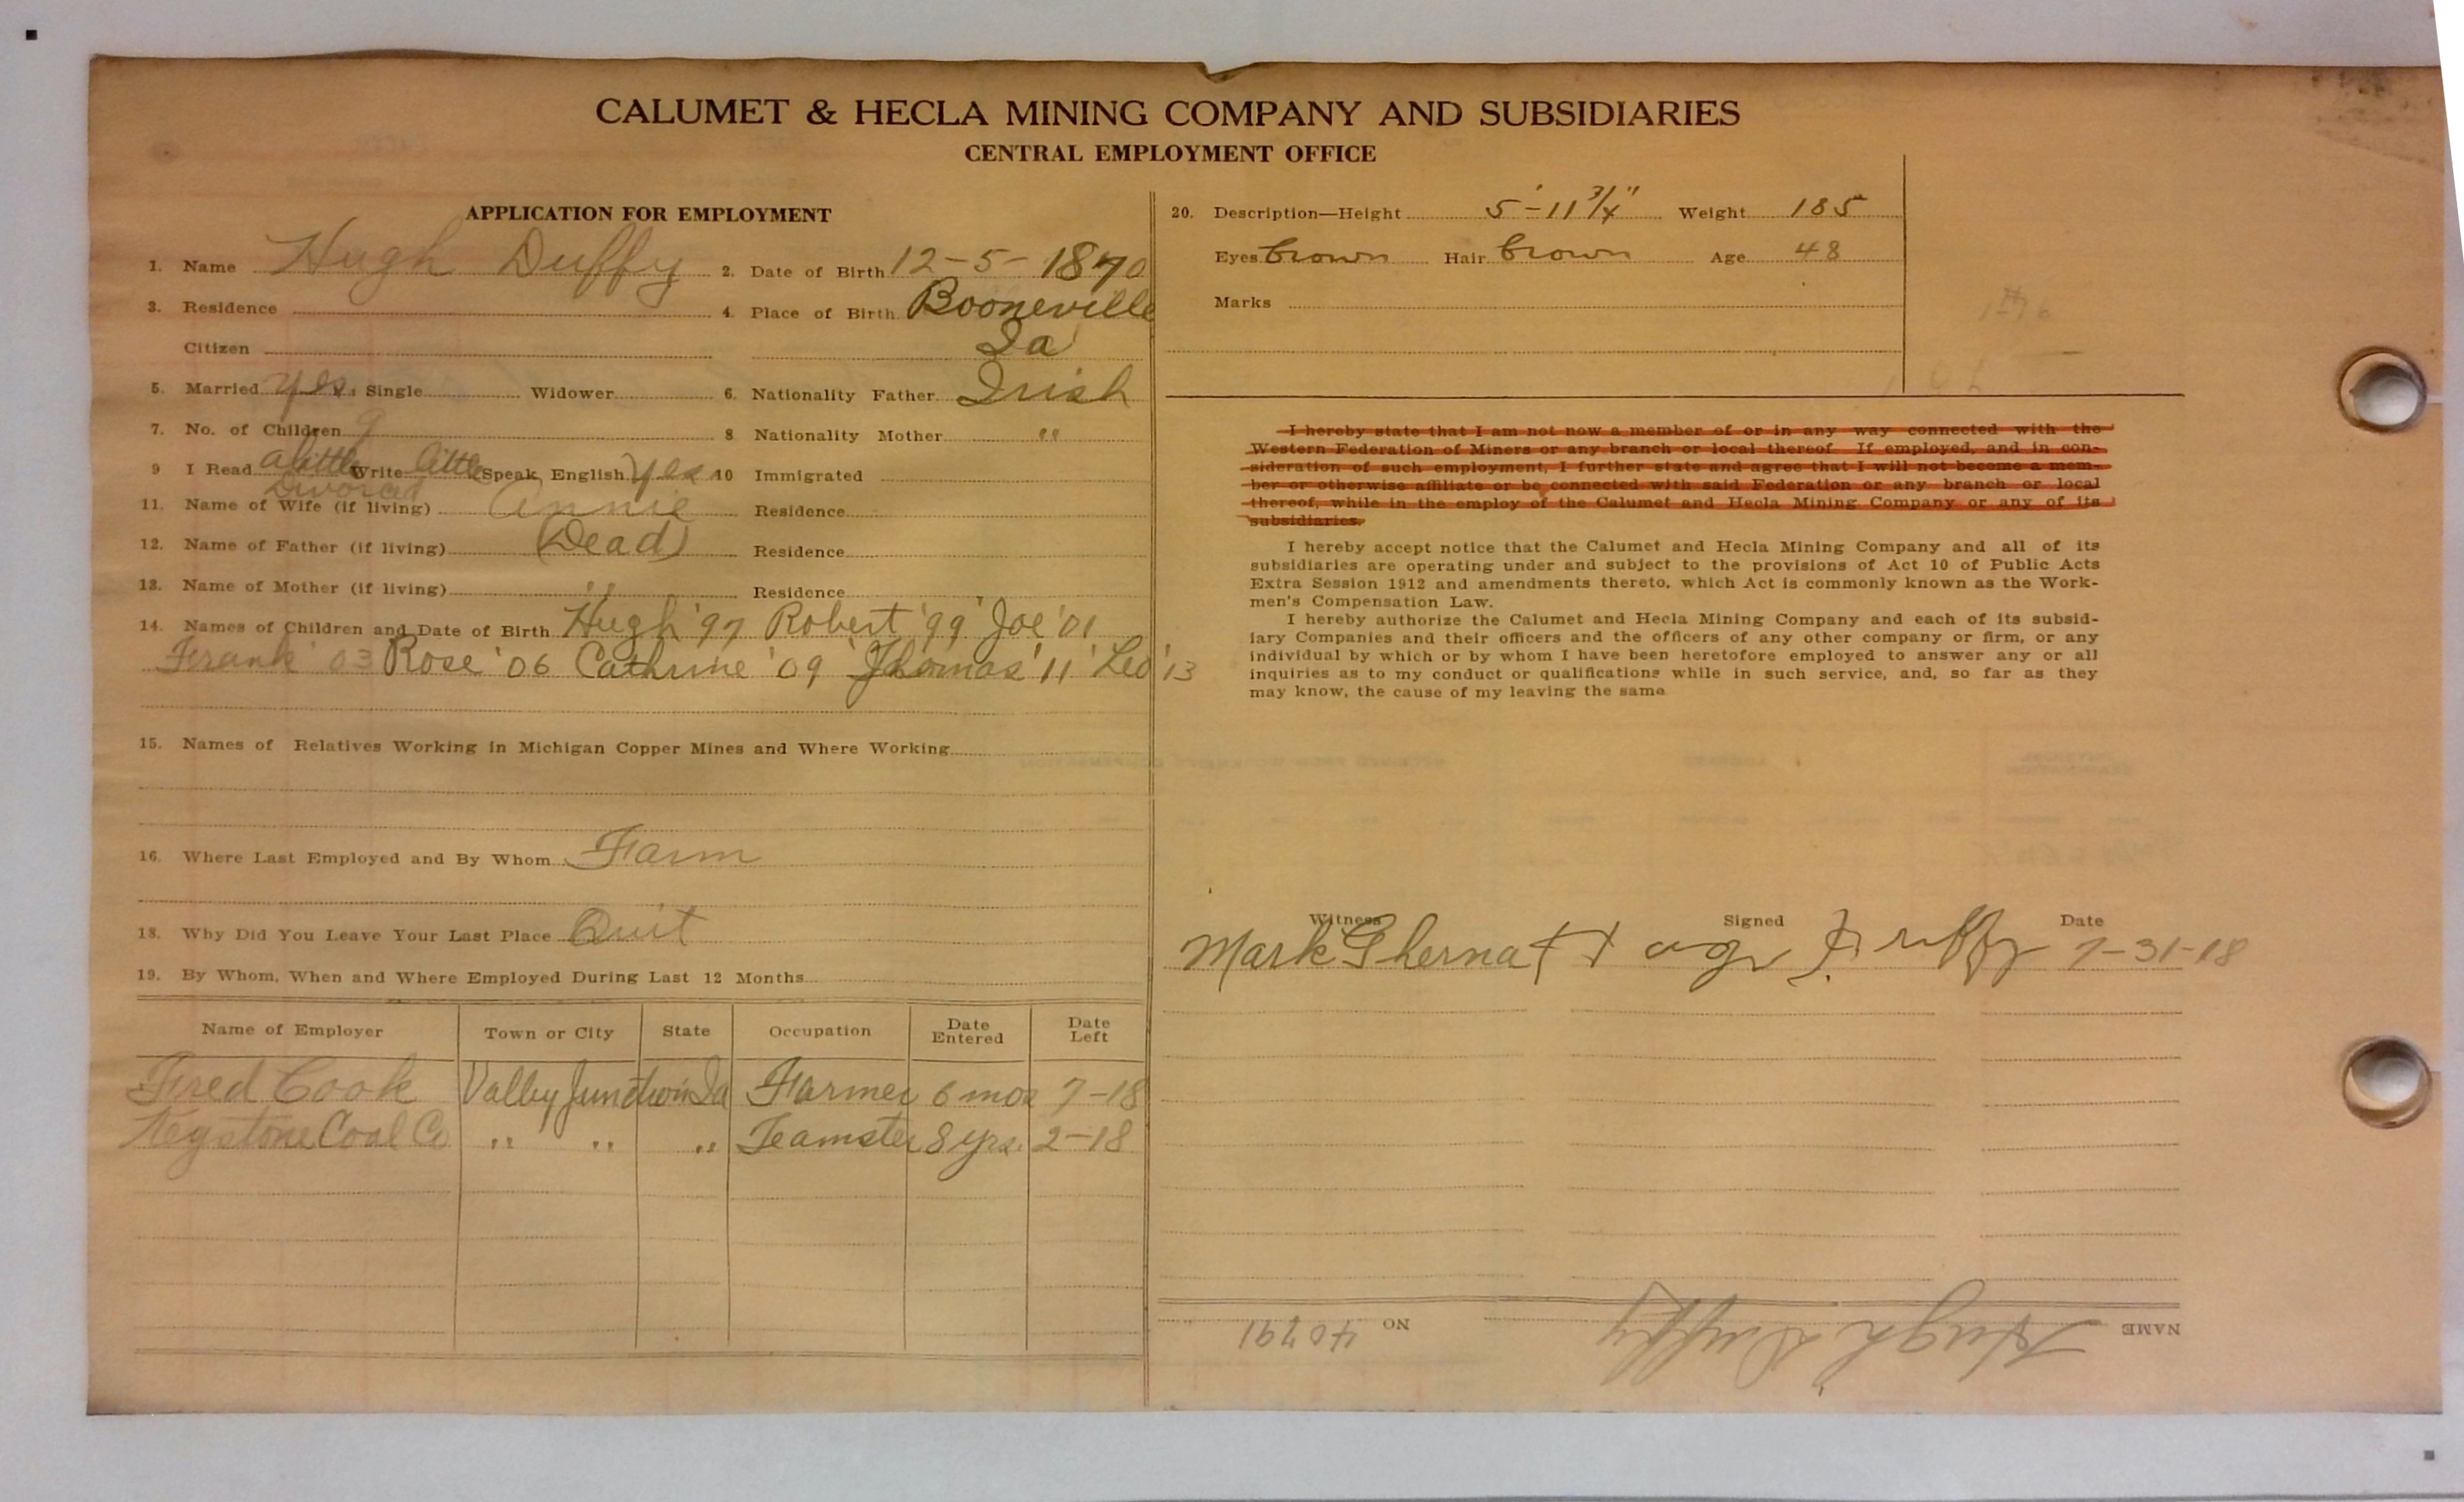 CALUMET & HECLA MINING COMPANY AND SUBSIDIARIES
CENTRAL EMPLOYMENT OFFICE
APPLICATION FOR EMPLOYMENT
1. Name Hugh Duffy 2. Date of Birth 12-5-1870
3. Residence 4. Place of Birth Booneville
Citizen Ia
5. Married yes Single Widower 6. Nationality Father Irish
7. No. of Children 9 8 Nationality Mother "
9 I Read a little Write little Speak English yes 10 Immigrated
Divorced
11. Name of Wife (if living) Annie Residence
12. Name of Father (if living) (Dead) Residence
13. Name of Mother (if living) " Residence
14. Names of Children and Date of Birth Hugh '97 Robert '99 Joe '01
Frank '03 Rose '06 Cathrine '09 Thomas '11 Leo '13
15. Names of Relatives Working in Michigan Copper Mines and Where Working
16. Where Last Employed and By Whom Farm
18. Why Did You Leave Your Last Place Quit
19. By Whom, When and Where Employed During Last 12 Months
Name of Employer Town or City State Occupation Date Entered Date Left
Fred Cook Valley Junction Ia Farmer 6 mos 7-18
Keystone Coal Co " " " Teamster 8 yrs. 2-18
20. Description—Height 5'-11 3/4" Weight 185
Eyes brown Hair brown Age 48
Marks
I hereby state that I am not now a member of or in any way connected with the
Western Federation of Miners or any branch or local thereof. If employed, and in con-
sideration of such employment, I further state and agree that I will not become a mem-
ber or otherwise affiliate or be connected with said Federation or any branch or local
thereof, while in the employ of the Calumet and Hecla Mining Company or any of its
subsidiaries.
I hereby accept notice that the Calumet and Hecla Mining Company and all of its
subsidiaries are operating under and subject to the provisions of Act 10 of Public Acts
Extra Session 1912 and amendments thereto, which Act is commonly known as the Work-
men's Compensation Law.
I hereby authorize the Calumet and Hecla Mining Company and each of its subsid-
iary Companies and their officers and the officers of any other company or firm, or any
individual by which or by whom I have been heretofore employed to answer any or all
inquiries as to my conduct or qualifications while in such service, and, so far as they
may know, the cause of my leaving the same
Witness Signed Date
Mark 7-31-18
NAME Hugh Duffy NO 40791